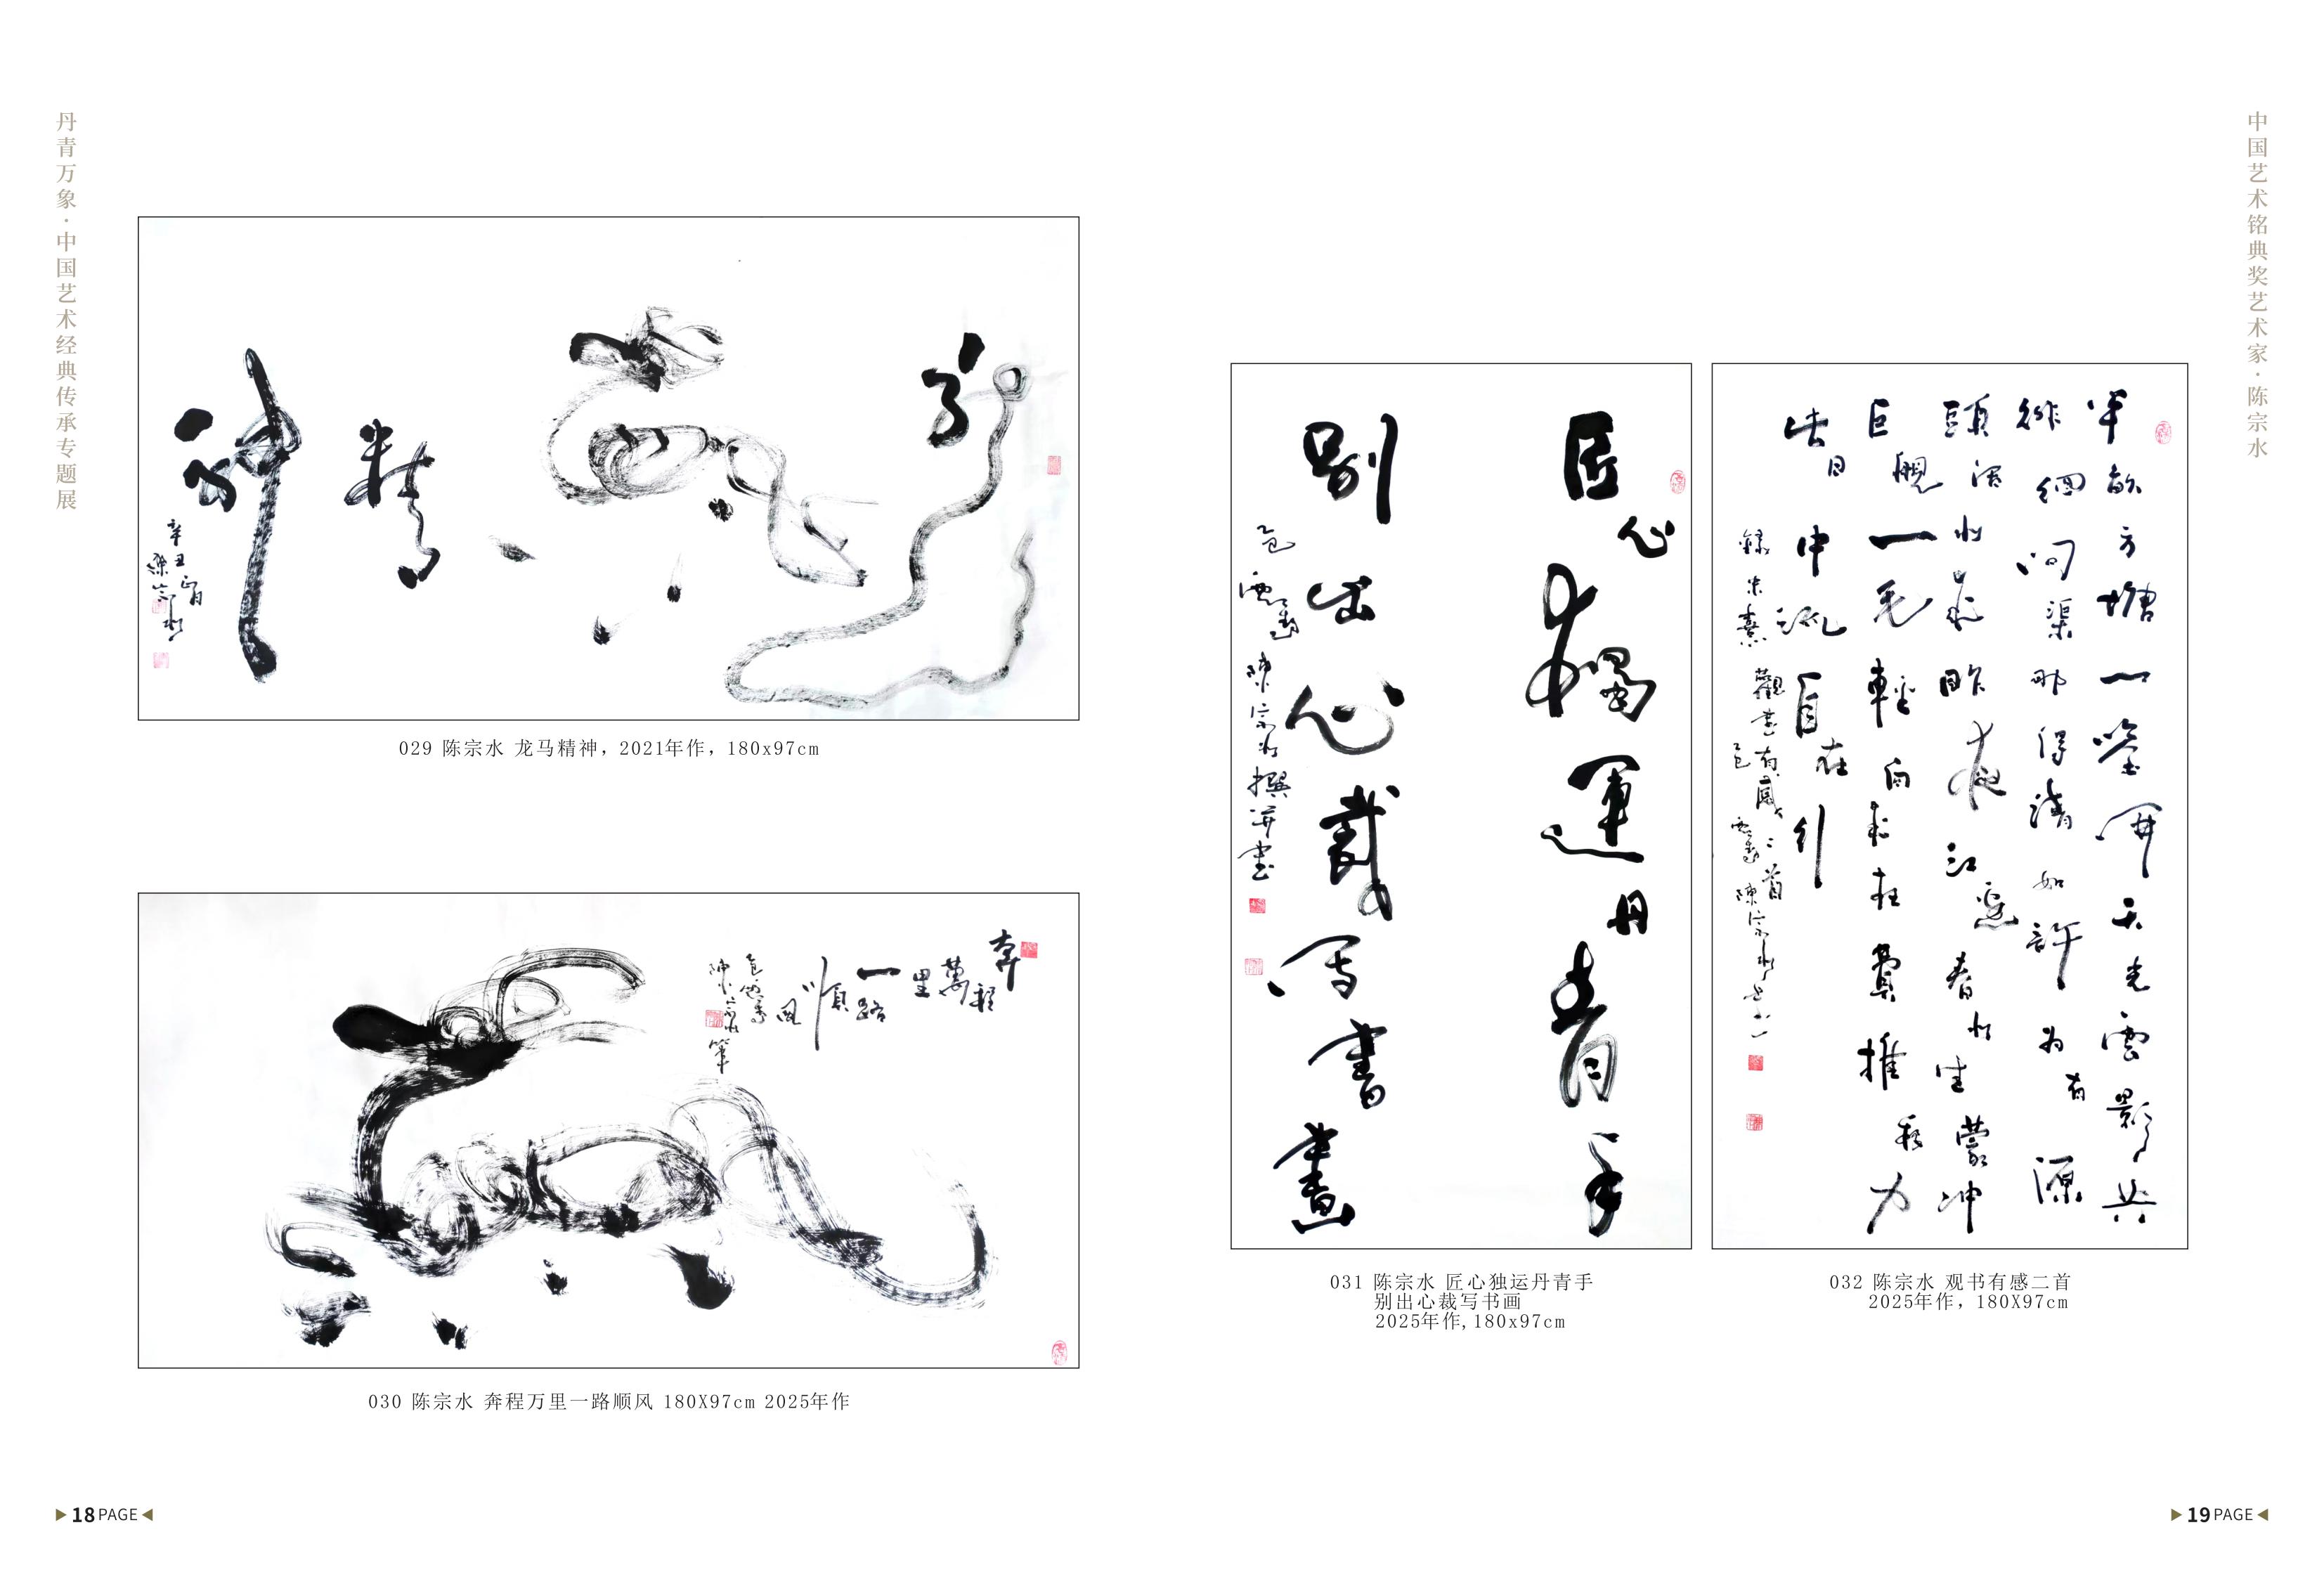 丹青万象·中国艺术经典传承专题展
龙马精神
辛丑正月
陳宗水
029 陈宗水 龙马精神，2021年作，180x97cm
奔程萬里一路順風
乙巳
陳宗水筆
030 陈宗水 奔程万里一路顺风 180X97cm 2025年作
▶18PAGE◀
中国艺术铭典奖艺术家·陈宗水
匠心獨運丹青手
别出心裁写書畫
乙巳 陳宗水撰并書
031 陈宗水 匠心独运丹青手
别出心裁写书画
2025年作,180x97cm
半畝方塘一鑒開天光雲影共
徘徊問渠那得清如許為有源
頭活水來昨夜江邊春水生蒙冲
巨舰一毛輕向來枉費推移力
此日中流自在行
錄朱熹觀書有感二首
乙巳 陳宗水书
032 陈宗水 观书有感二首
2025年作，180X97cm
▶19PAGE◀